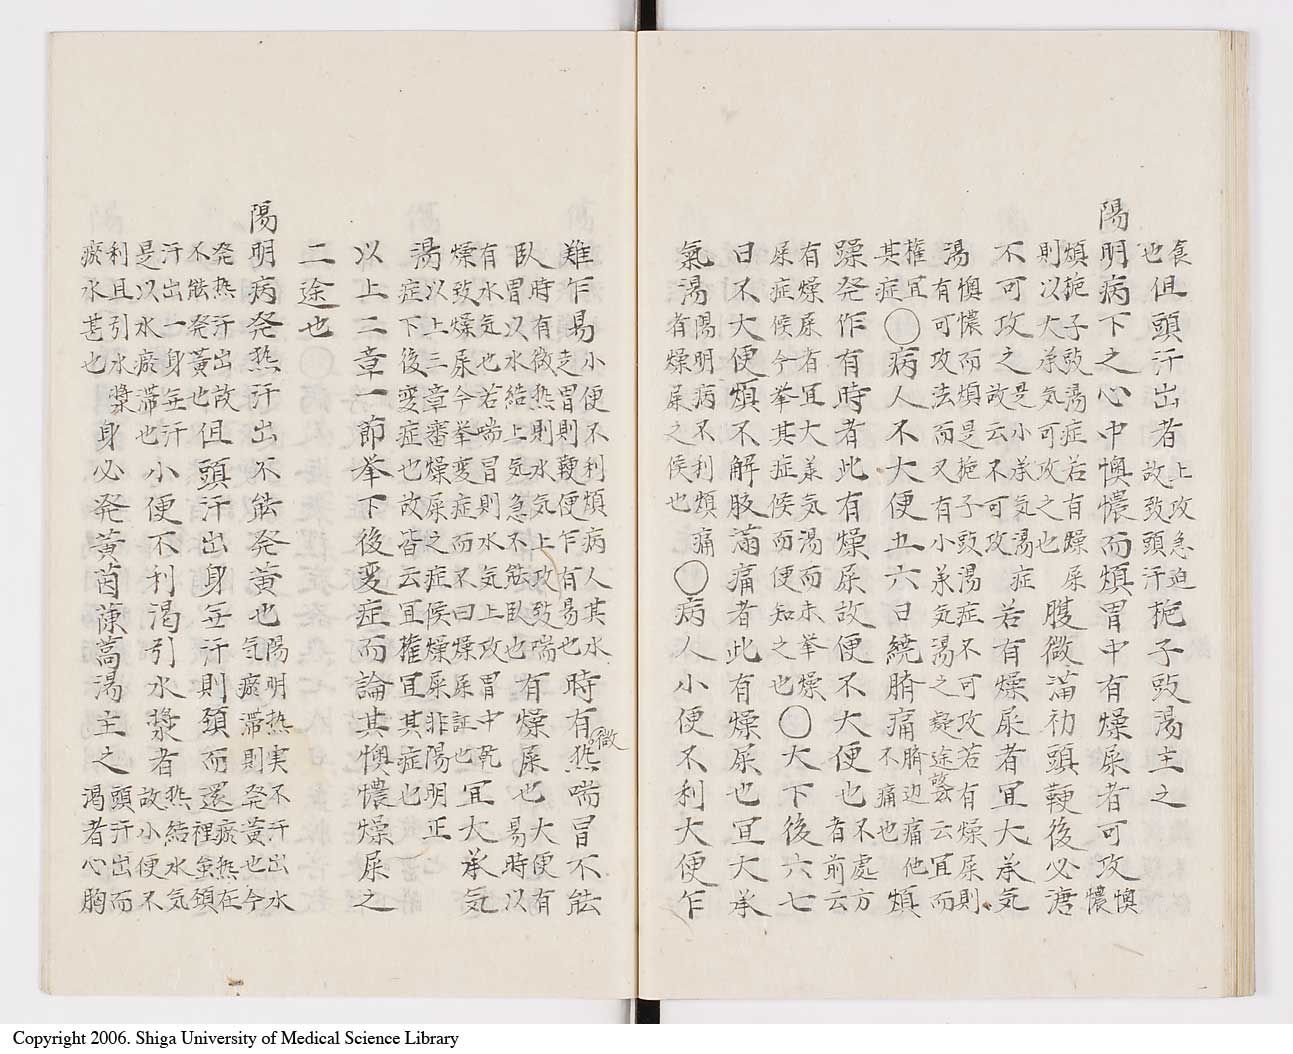 食
也
但頭汗出者
上攻急迫
故致頭汗
梔子豉湯主之
陽明病下之心中懊憹而煩胃中有燥屎者可攻
懊
憹
煩梔子豉湯症若有躁屎
則以大承気可攻之也
腹微滿初頭鞕後必溏
不可攻之
是小承気湯症
故云不可攻
若有燥屎者宜大承気
湯
懊憹而煩是梔子豉湯症不可攻若有燥屎則
有可攻法而又有小承気湯之疑途故云宜而
權宜
其症
○病人不大便五六日繞臍痛
臍辺痛他
不痛也
煩
躁発作有時者此有燥屎故便不大便也
不處方
者前云
有燥屎者宜大承気湯而未挙燥
屎症候今挙其症候而便知之也
○大下後六七
日不大便煩不解腹滿痛者此有燥屎也宜大承
氣湯
陽明病不利煩痛
者燥屎之侯也
○病人小便不利大便乍
難乍易
小便不利煩病人其水
走胃則鞕便乍有易也
時有微热喘冒不能
臥
時有微热則水気上攻致喘
胃以水結上気急不能臥也
有燥屎也
大便有
易時以
有水気也若喘冒則水気上攻胃中乾
燥致燥屎今挙変症而不曰燥屎証也
宜大承気
湯
以上三章審燥屎之症候燥屎非陽明正
症下後変症也故皆云宜權宜其症也
以上二章一節挙下後変症而論其懊憹燥屎之
二途也
陽明病発热汗出不能発黄也
陽明热実不汗出水
気瘀滞則発黄也今
発热汗出故
不能発黄也
但頭汗出身無汗則頚而還
瘀热在
裡頚
汗出一身無汗
是以水瘀滞也
小便不利渇引水漿者
热結水気
故小便不
利且引水漿
瘀水甚也
身必発黄茵蔯蒿湯主之
頭汗出而
渇者心胸
Copyright 2006. Shiga University of Medical Science Library